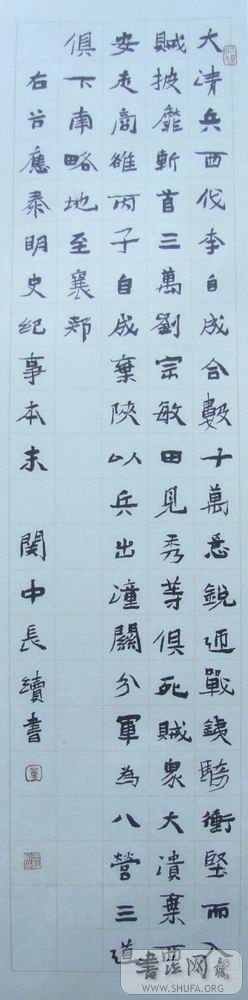 大清兵西伐李自成合數十萬悉銳迎戰銕騎衝堅而入
賊披靡斬首三萬劉宗敏田見秀等俱死賊眾大潰棄西
安走商雒丙子自成棄陝以兵出潼關分軍為八營三道
俱下南略地至襄郟
右谷應泰明史紀事本末 関中長續書
書法网
WWW.SHUFA.ORG